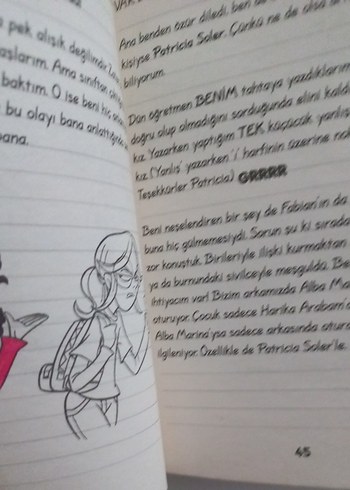 pek alışık değilimdir.
aslarım. Ama sınıftan
baktım. O ise beni hiç
bu olayı bana anlattığında
bana.
Ana benden özür diledi, ben de
kişiyse Patricia Soler. Çünkü ne de olsa
biliyorum.
Don öğretmen BENİM tahtaya yazdıklarım
doğru olup olmadığını sorduğunda elini kald
kız. Yazarken yaptığım TEK küçücük yanlış
kız. (Yanlış yazarken 'i' harfinin üzerine
Teşekkürler Patricia) GRRRR
Beni neşelendiren bir şey de Fabian'ın da
buna hiç gülmemesiydi. Sorun şu ki sırada
zar konuştuk. Birileriyle ilişki kurmaktan
ya da burnundaki sivilceyle meşguldü. Be
ihtiyacım var! Bizim arkamızda Alba Ma
oturuyor. Çocuk sadece Harika Arabam'
Alba Marina'ysa sadece arkasında otur
ilgileniyor. Özellikle de Patricia Soler'le.
45